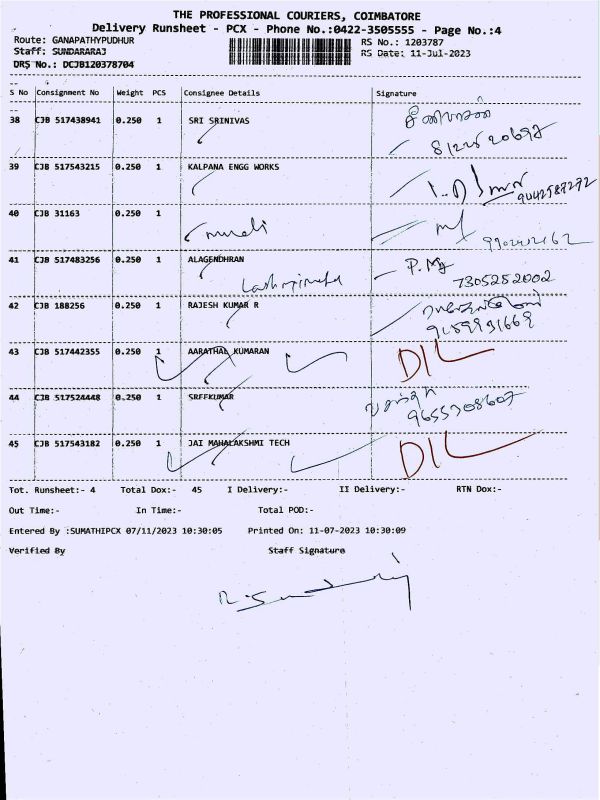 THE PROFESSIONAL COURIERS, COIMBATORE
Delivery Runsheet - PCX - Phone No.:0422-3505555 - Page No.:4
Route: GANAPATHYPUDHUR RS No.: 1203787
Staff: SUNDARARAJ RS Date: 11-Jul-2023
DRS No.: DCJB120378704
S No Consignment No Weight PCS Consignee Details Signature
38 CJB 517438941 0.250 1 SRI SRINIVAS
39 CJB 517543215 0.250 1 KALPANA ENGG WORKS
9042587272
40 CJB 31163 0.250 1
murali
41 CJB 517483256 0.250 1 ALAGENDHRAN
7305252002
42 CJB 188256 0.250 1 RAJESH KUMAR R
9159991669
43 CJB 517442355 0.250 1 AARATHAL KUMARAN DIL
44 CJB 517524448 0.250 1 SREEKUMAR
9655308607
45 CJB 517543182 0.250 1 JAI MAHALAKSHMI TECH DIL
Tot. Runsheet:- 4 Total Dox:- 45 I Delivery:- II Delivery:- RTN Dox:-
Out Time:- In Time:- Total POD:-
Entered By :SUMATHIPCX 07/11/2023 10:30:05 Printed On: 11-07-2023 10:30:09
Verified By Staff Signature